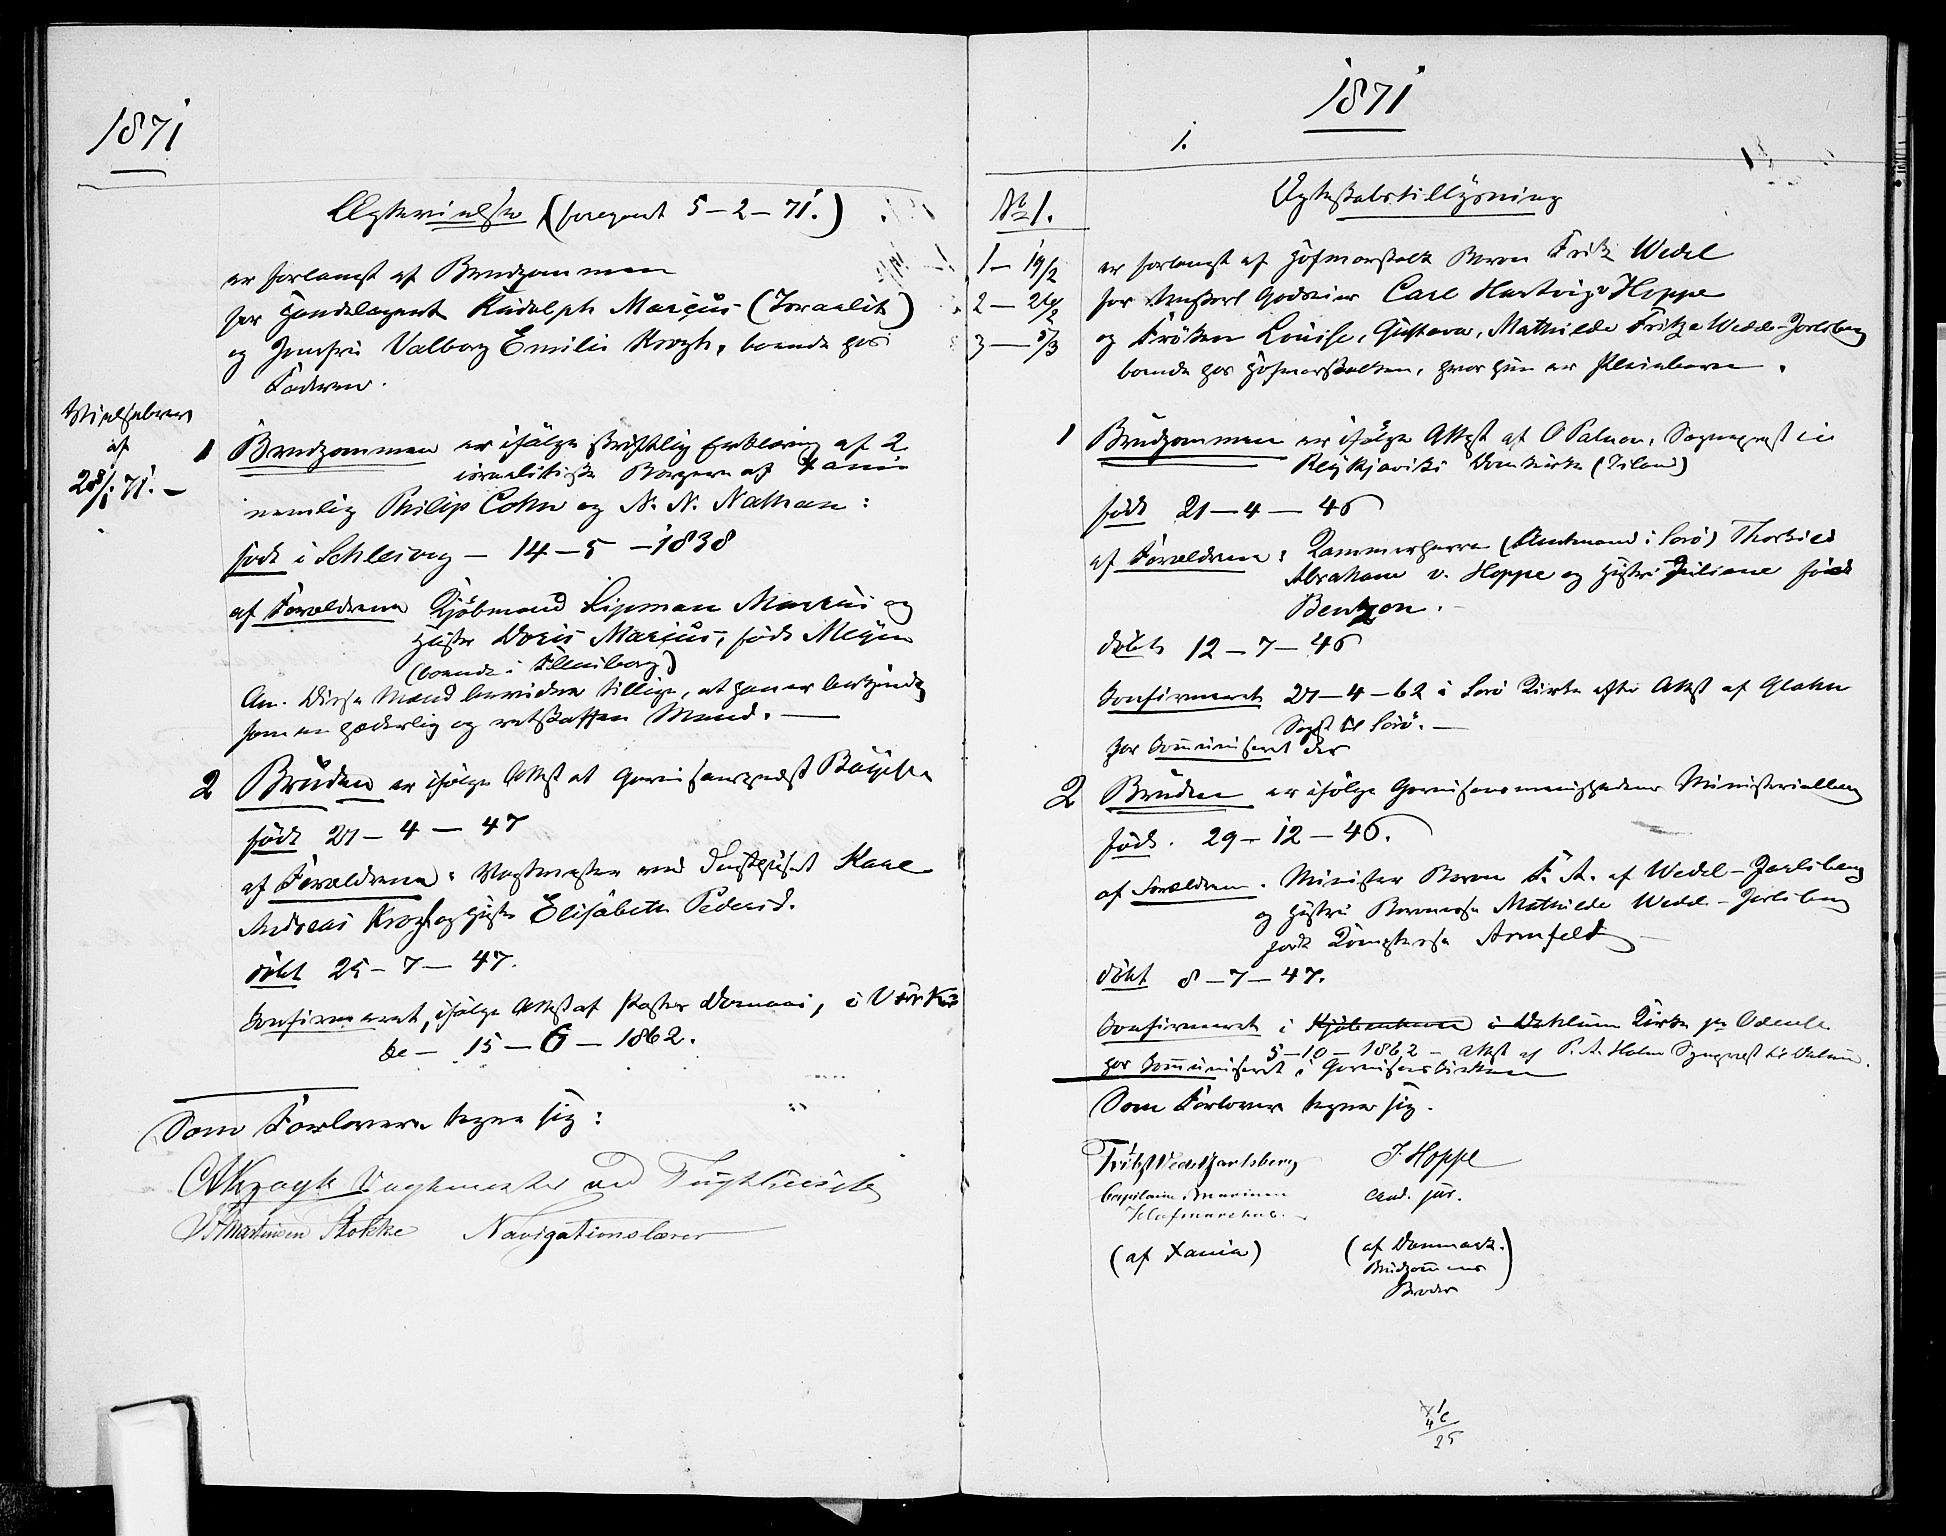 1871
Ægtevielse (foregaat 5-2-71.)
er forlangt af Brudgommen
for Handelsagent Rudolph Marcus (Israelit)
og Jomfru Valborg Emilie Krogh, boende hos
Faderen.
Vielsebrev
af
28/1 71. -
1 Brudgommen er ifölge skriftlig Erklæring af 2
israelitiske Borgere af Xania
nemlig Philip Cohn og N. N. Nathan:
født i Schlesvig - 14-5-1838
af Forældrene Kjöbmand Lipman Marcus og
Hustru Doris Marcus, födt Meyer
(boende i Flensborg)
Anm. Disse Mænd bevidne tillige, at han er bekjendt
som en hæderlig og retskaffen Mand. -
2 Bruden er ifölge Attest af Garnisonspræst
födt 27-4-47
af Forældrene: Vagtmester ved Tugthuset Karl
Andreas Krogh og Hustru Elisabeth Pedersd.
döbt 25-7-47.
Confirmeret, ifölge Attest af Pastor, i Vor Kir
ke - 15-6-1862.
Som Forlovere tegne sig:
CAKrogh Vagtmester ved Tugthuset
Martinsen Stokke Navigationslærer
1871
1.
No 1.
Ægteskabstillysning
1 - 19/2
2 - 26/2
3 - 5/3
er forlangt af Hofmarskalk Baron Fritz Wedel
for Godseier Carl Hartvig Hoppe
og Fröken Louise, Gustava, Mathilde Fritze Wedel-Jarlsberg
boende hos Hofmarskalken, hvor hun er Pleiebarn.
1 Brudgommen er ifölge Attest af O Palson, Sogneprest i
Reykjaviks Domkirke (Island)
födt 21-4-46
af Forældrene: Kammerherre (Amtmand i Sorö) Thorkild
Abraham v. Hoppe og Hustru Juliane född
Bentzon.
döbt 12-7-46
Confirmeret 27-4-62 i Sorö Kirke efter Attest af Glahn
Sgpst til Sorö. -
har Communiseret der
2 Bruden er ifölge Garnisonsmenighedens Ministerialbog
födt. 29-12-46.
af Forældrene. Minister Baron F. A. af Wedel-Jarlsberg
og Hustru Baronesse Mathilde Wedel-Jarlsberg
født Komptesse Armfeldt -
döbt 8-7-47.
Confirmeret i Kjøbenhavn i Dahlum Kirke pr Odense
5-10-1862 - Attest af P. A. Holm Sognprest til Dalum.
har Communiseret i Garnisonskirken
Som Forlovere tegner sig.
Fritz Wedel Jarlsberg
Capitaine i Marinen
Hofmarechal.
(af Xania)
J. Hoppe
cand. jur.
(af Danmark.
Brudgommens
Broder)
25